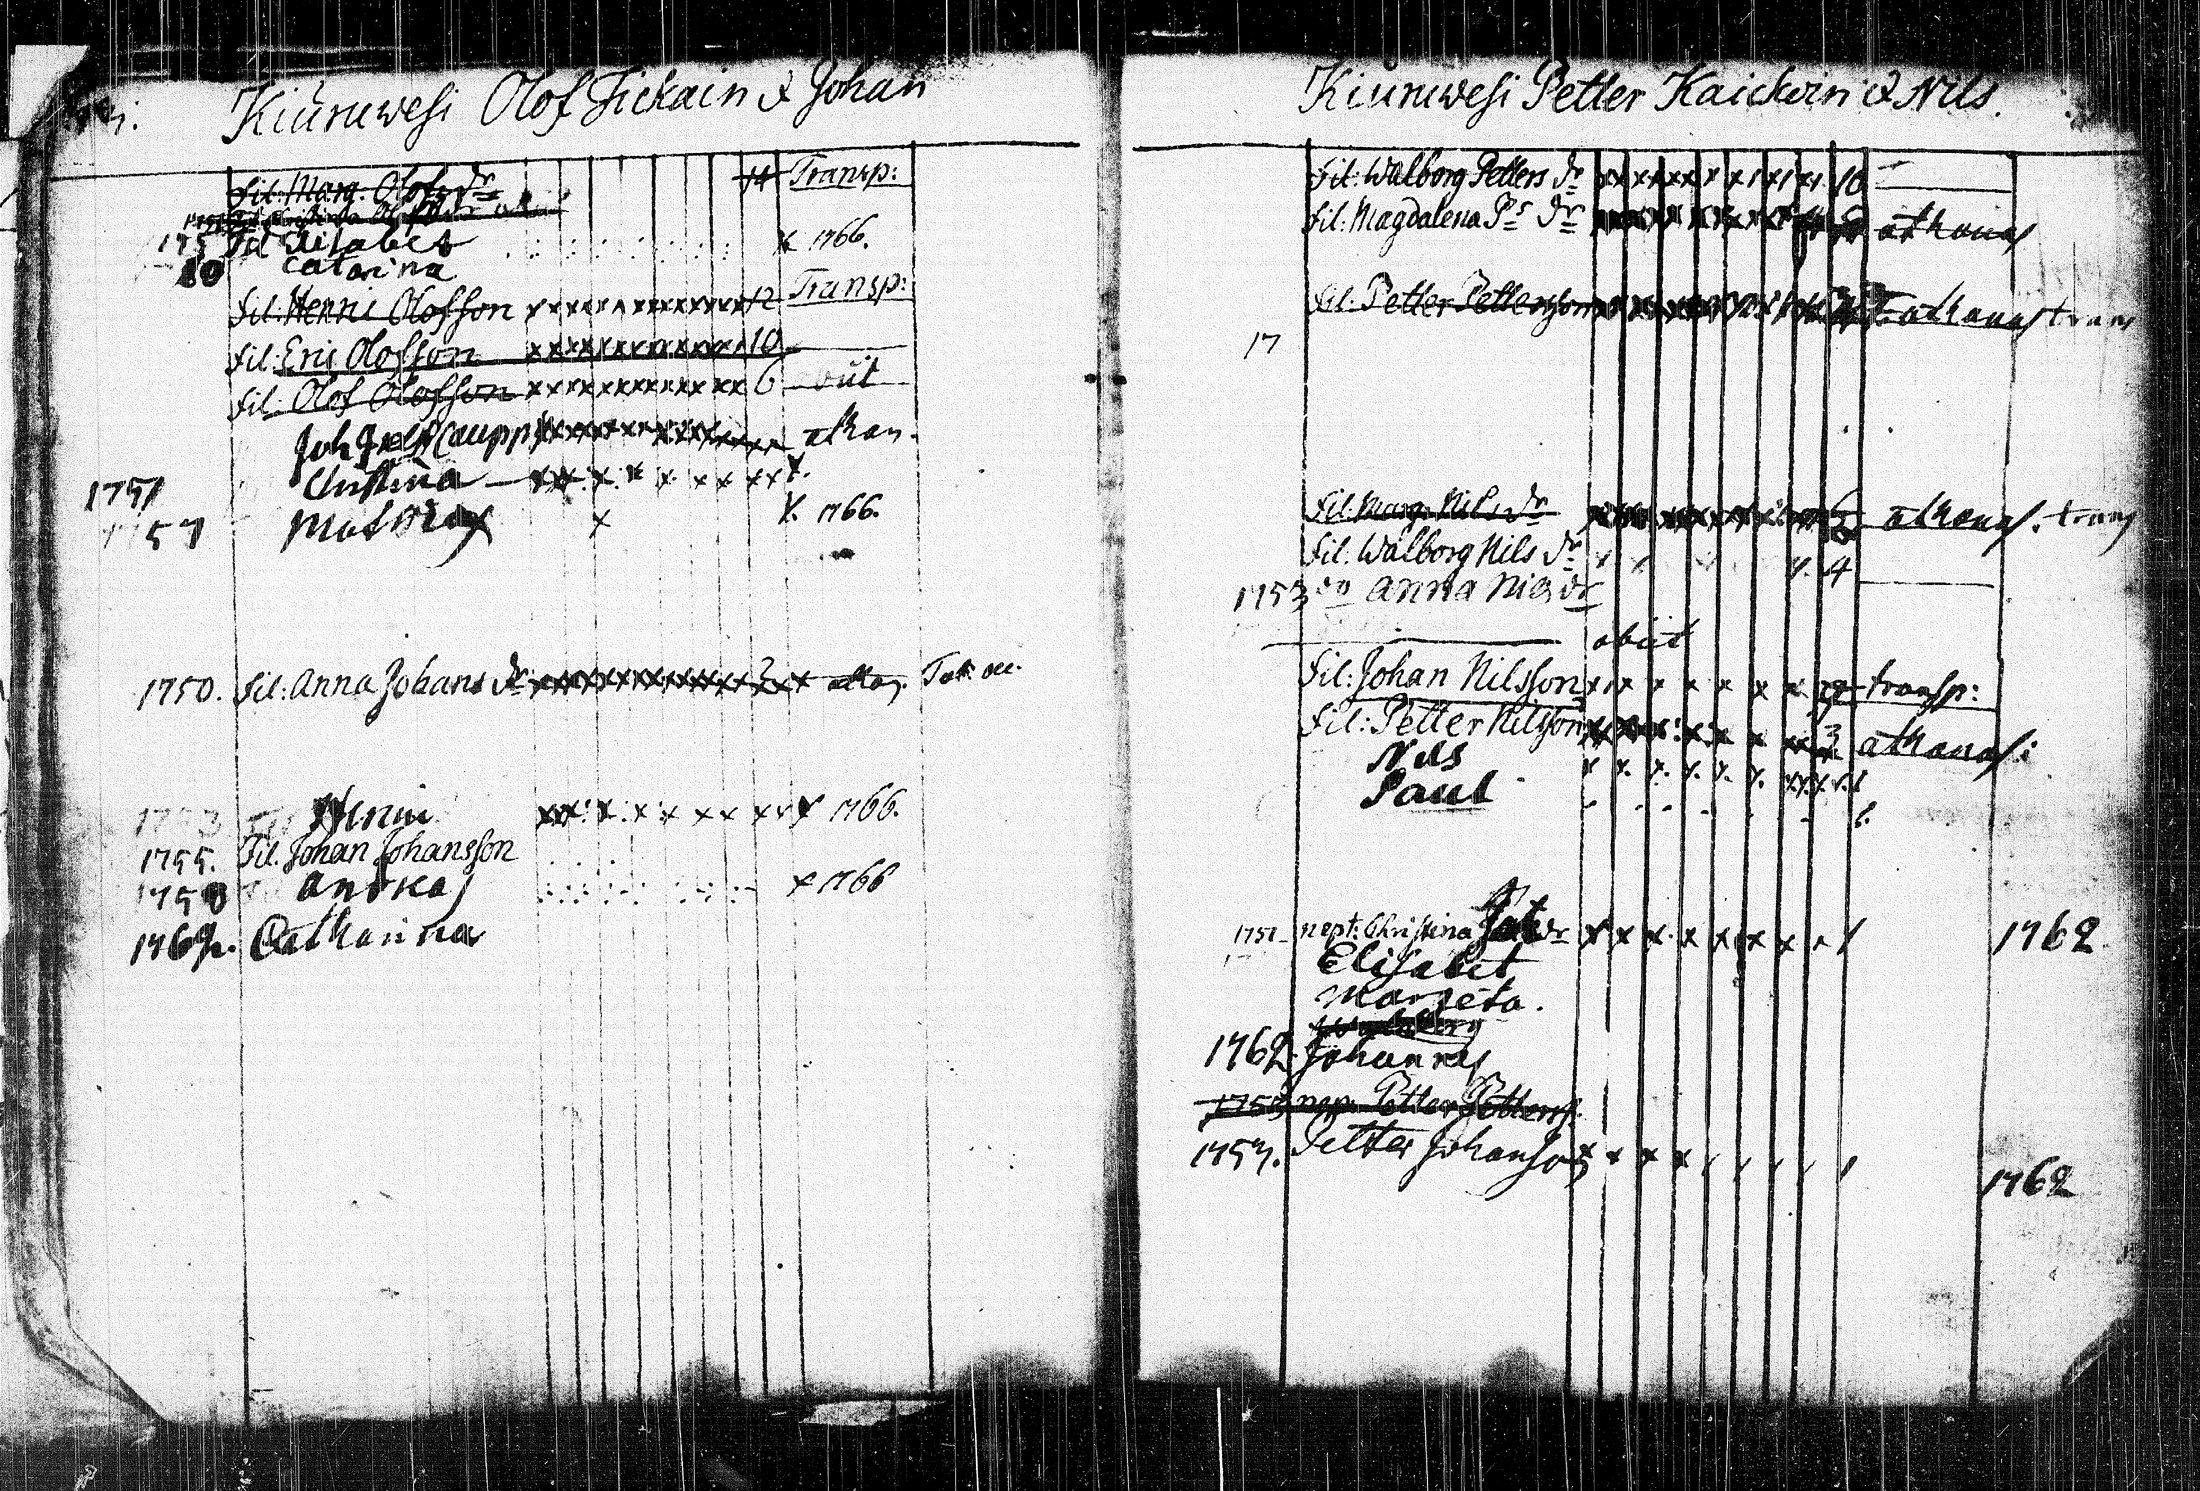 Kiuruwesi Olof Tickain & Johan
Fil: Marg. Olofs dr 14 Transp:
Fil Elisabet x 1766.
10 Catarina
Fil: Henric Olofsson x x x x x x x x x x x x 12 Transp:
Fil: Eric Olofsson x x x x x x x x x x x x 10
Fil: Olof Olofsson x x x x x x x x x x x x 6 obiit
Joh athan.
1751 Christina x x x x x x x x x x
1757 Mathias x x. 1766.
1750. Fil: Anna Johans dr x x x x x x x x x x x x 3 x
1753 Henric x x x x x x x x x x x 1766.
1755. Fil. Johan Johansson
1758 Andreas x 1766
Catharina
Kiuruwesi Petter Kaickoin & Nils.
Fil: Walborg Petters dr x x x x x x x x x x 10
Fil: Magdalena Ps dr athanas
Fil: Petter Pettersson athanas trans
17
Fil: Marg. Nils dr athanas. trans
Fil. Walborg Nils dr x x x. 4
1753 do Anna Nils dr
obiit
Fil: Johan Nilsson x x x x x x x x transp:
Fil: Petter Nilsson x x x x x x x x x 3 athanas:
Nils x x. x. x. x. x. x. x. x. x.
Paul
1751 nept: Christina x x x x x x x x 1762.
Elisabet
Margeta.
1762. Johannes
1753 nep. Petter Petterss.
1757. Petter Johansson x x x x 1762